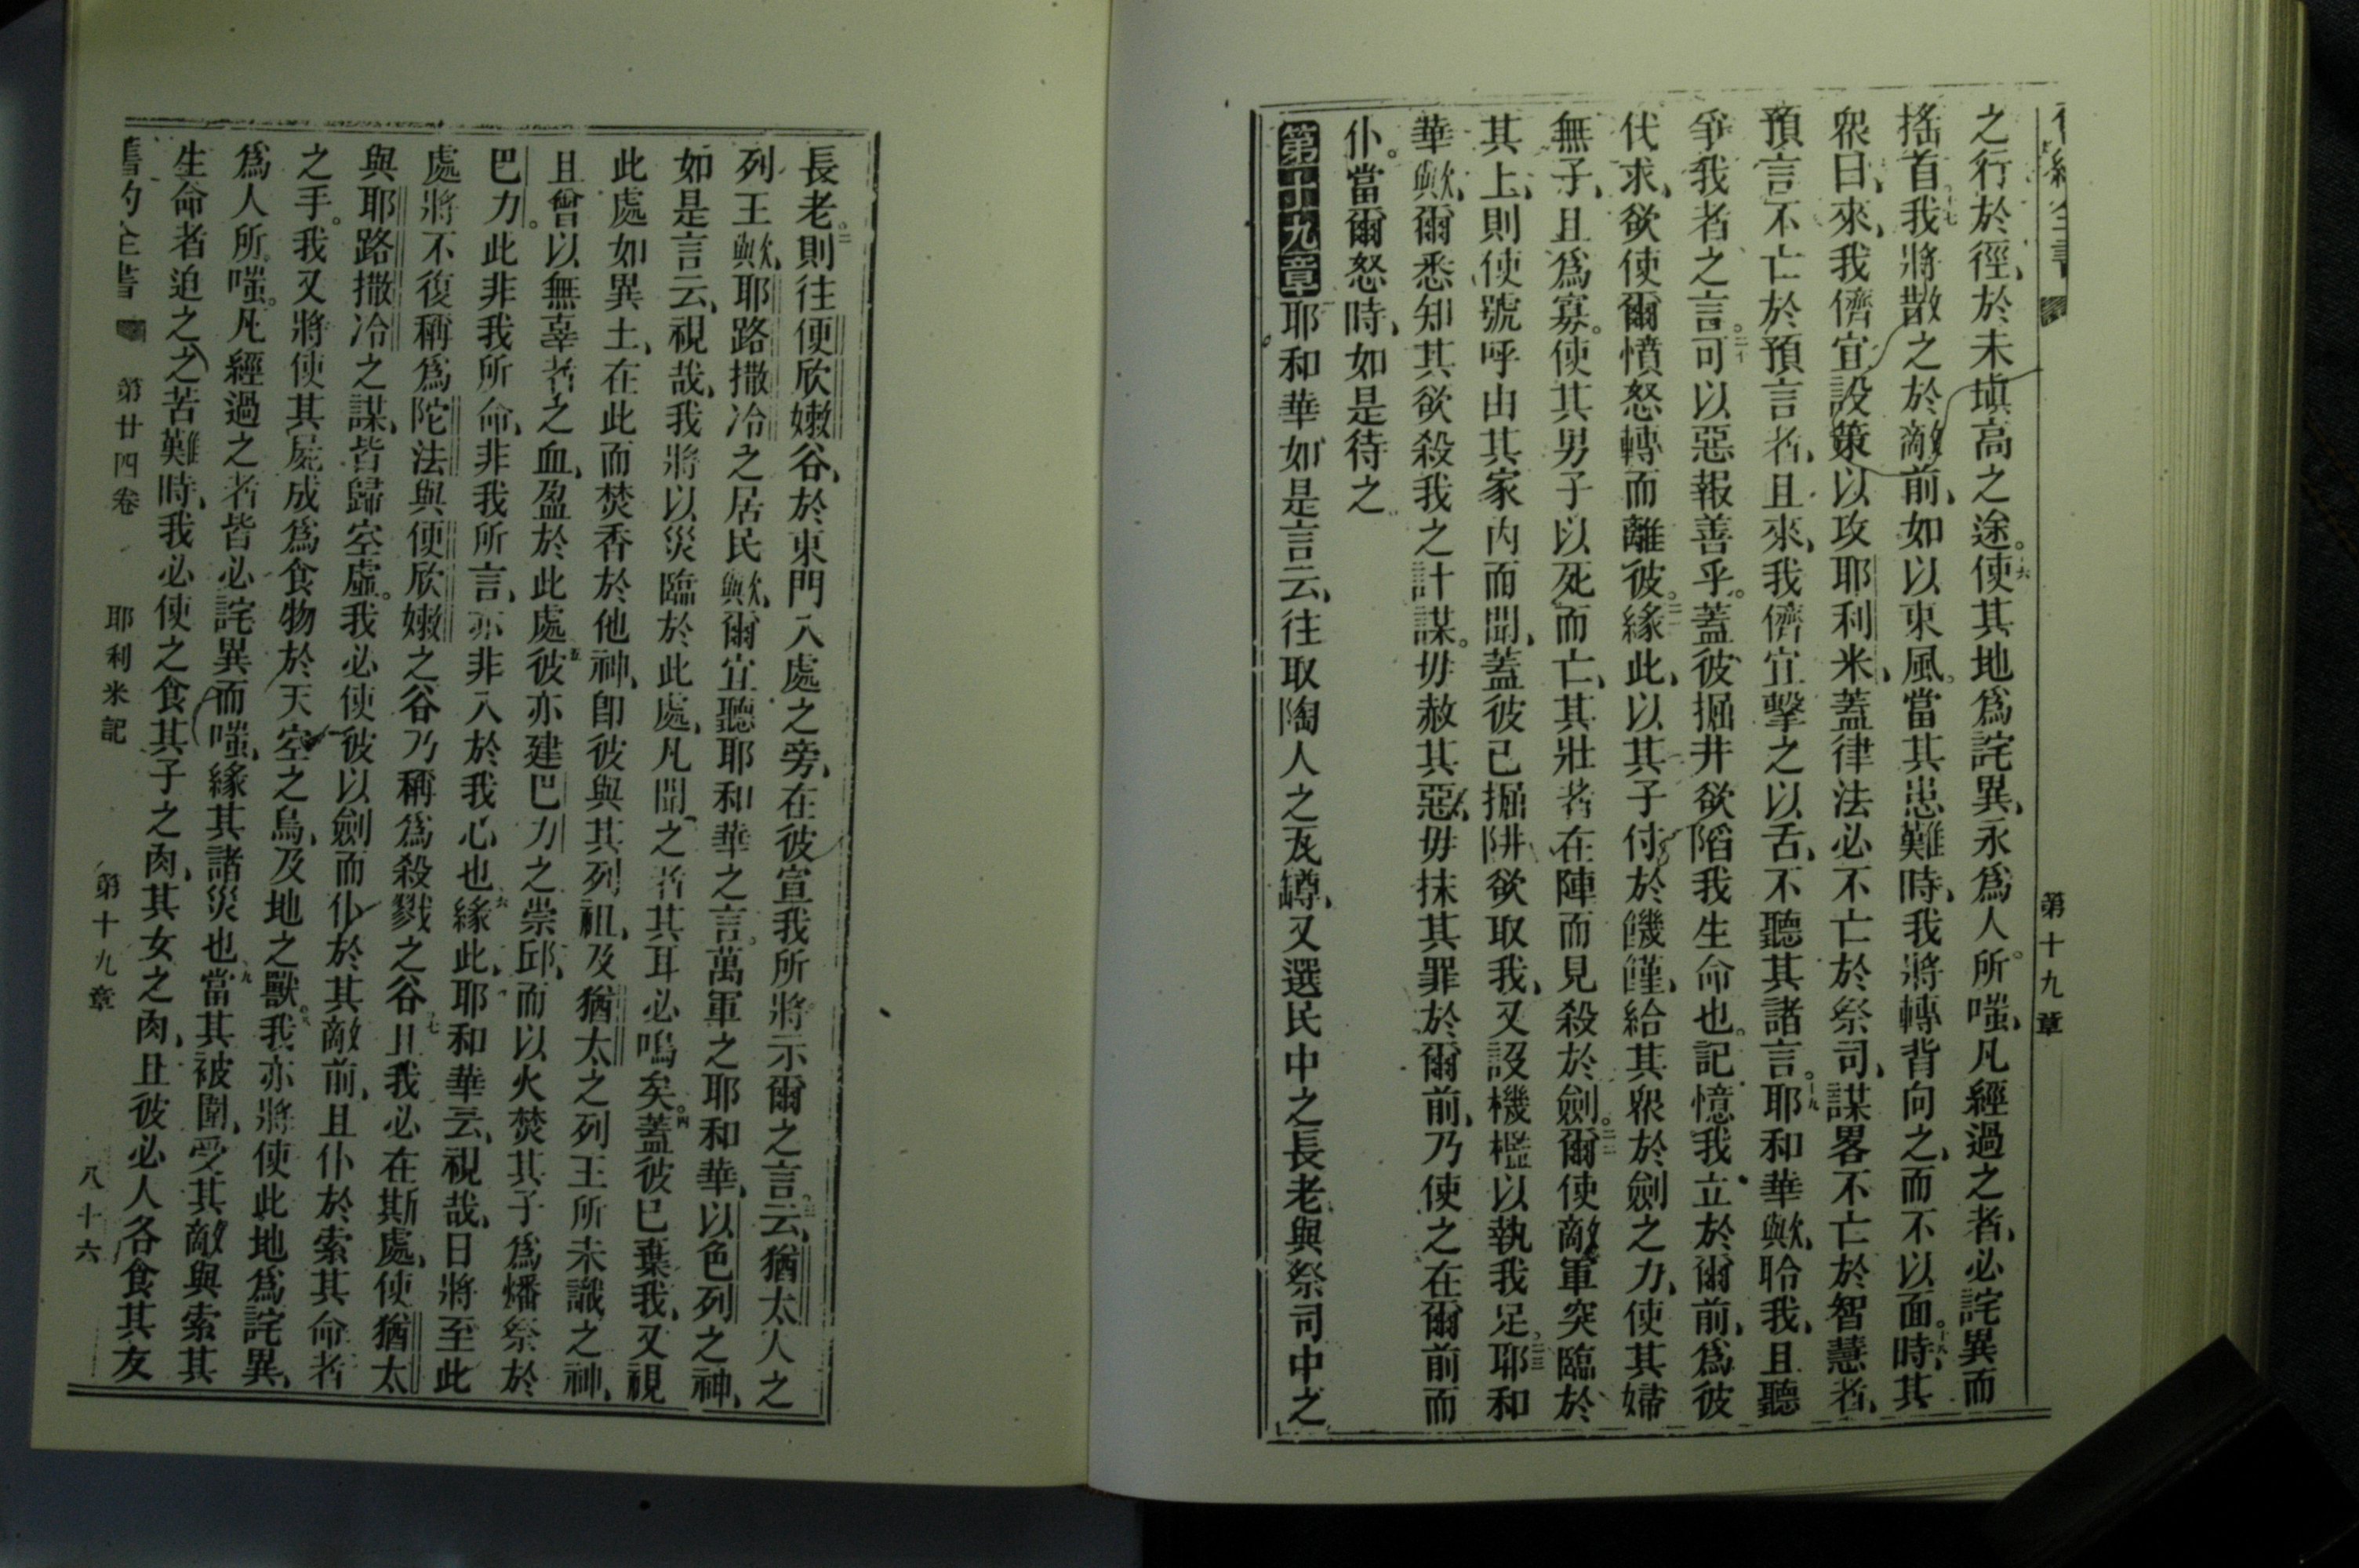 第十九章
之行於徑、於未塡高之途。六使其地爲詫異、永爲人所嗤、凡經過之者、必詫異而
搖首。十七我將散之於敵前、如以東風。當其患難時、我將轉背向之、而不以面。十八時、其
衆曰、來、我儕宜設策以攻耶利米、蓋律法必不亡於祭司、謀畧不亡於智慧者、
預言不亡於預言者、且來、我儕宜擊之以舌、不聽其諸言。十九耶和華歟、聆我、且聽
爭我者之言。二十可以惡報善乎。蓋彼掘井欲陷我生命也。記憶我立於爾前、爲彼
代求、欲使爾憤怒轉而離彼。二一緣此、以其子付於饑饉、給其衆於劍之力、使其婦
無子、且爲寡。使其男子以死而亡、其壯者在陣而見殺於劍。二二爾使敵軍突臨於
其上、則使號呼由其家內而聞、蓋彼已掘阱欲取我、又設機檻以執我足。二三耶和
華歟、爾悉知其欲殺我之計謀。毋赦其惡、毋抹其罪於爾前、乃使之在爾前而
仆。當爾怒時、如是待之
第十九章耶和華如是言云、往取陶人之瓦罇、又選民中之長老與祭司中之
長老。二則往便欣嫩谷、於東門入處之旁、在彼宣我所將示爾之言。三云、猶太人之
列王歟、耶路撒冷之居民歟、爾宜聽耶和華之言。萬軍之耶和華、以色列之神、
如是言云、視哉、我將以災臨於此處、凡聞之者其耳必鳴矣。四蓋彼已棄我、又視
此處如異土、在此而焚香於他神、卽彼與其列祖、及猶太之列王所未識之神、
且曾以無辜者之血、盈於此處。五彼亦建巴力之崇邱、而以火焚其子爲燔祭於
巴力。此非我所命、非我所言、亦非入於我心也。六緣此、耶和華云、視哉、日將至此
處將不復稱爲陀法與便欣嫩之谷乃稱爲殺戮之谷。七且我必在斯處、使猶太
與耶路撒冷之謀、皆歸空虛。我必使彼以劍而仆於其敵前、且仆於索其命者
之手。我又將使其屍成爲食物於天空之鳥、及地之獸。八我亦將使此地爲詫異、
爲人所嗤。凡經過之者皆必詫異而嗤、緣其諸災也。九當其被圍、受其敵與索其
生命者迫之之苦難時、我必使之食其子之肉、其女之肉、且彼必人各食其友
舊約全書 第廿四卷 耶利米記 第十九章 八十六